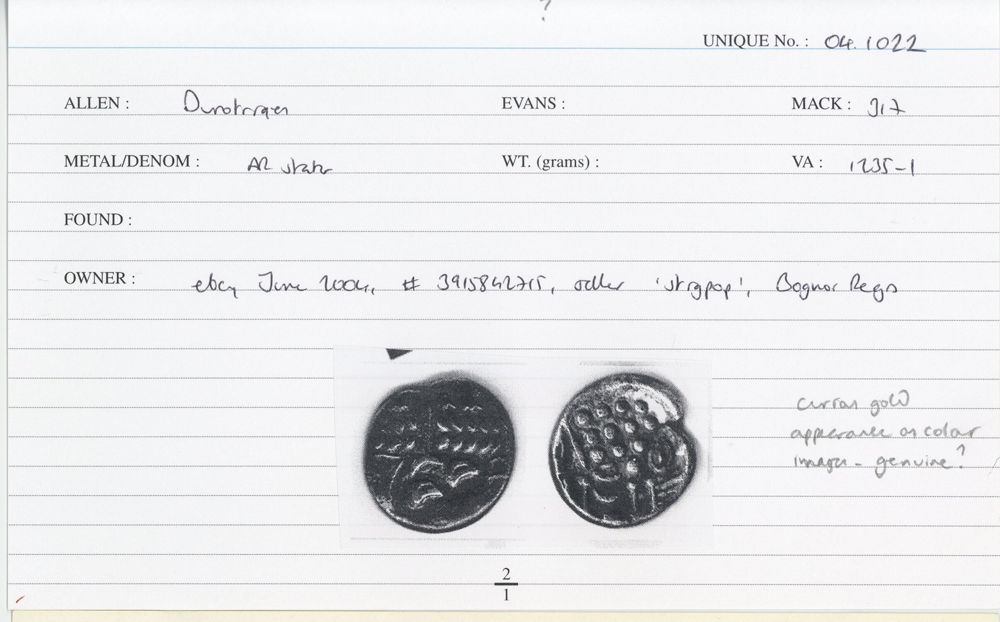 ?
UNIQUE No. : 04.1022
ALLEN : Durotriges EVANS : MACK : 317
METAL/DENOM : AR stater WT. (grams) : VA : 1235-1
FOUND :
OWNER : ebay June 2004, # 3915842715, seller 'strgpop', Bognor Regis
curious gold
appearance on colour
images - genuine?
2
1